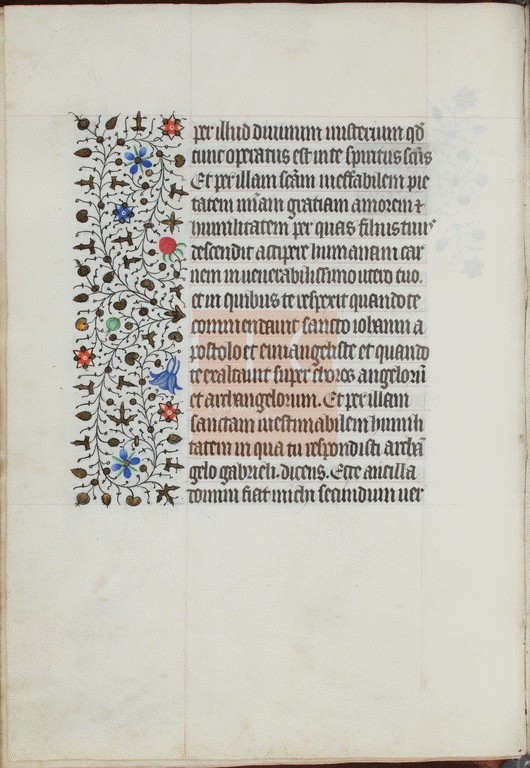 per illud diuinum misterium qd̄
tunc operatus est in te spiritus sc̄us
Et per illam sc̄am ineffabilem pie
tatem mīam gratiam amorem ⁊
humilitatem per quas filius tuus
descendit accipere humanam car
nem in uenerabilissimo utero tuo.
et in quibus te respexit quando te
commendauit sancto iohanni a
postolo et euuangeliste et quando
te exaltauit super choros angelorū
et archangelorum. Et per illam
sanctam inestimabilem humili
tatem in qua tu respondisti archā
gelo gabrieli. dicens. Ecce ancilla
domini fiat michi secundum uer